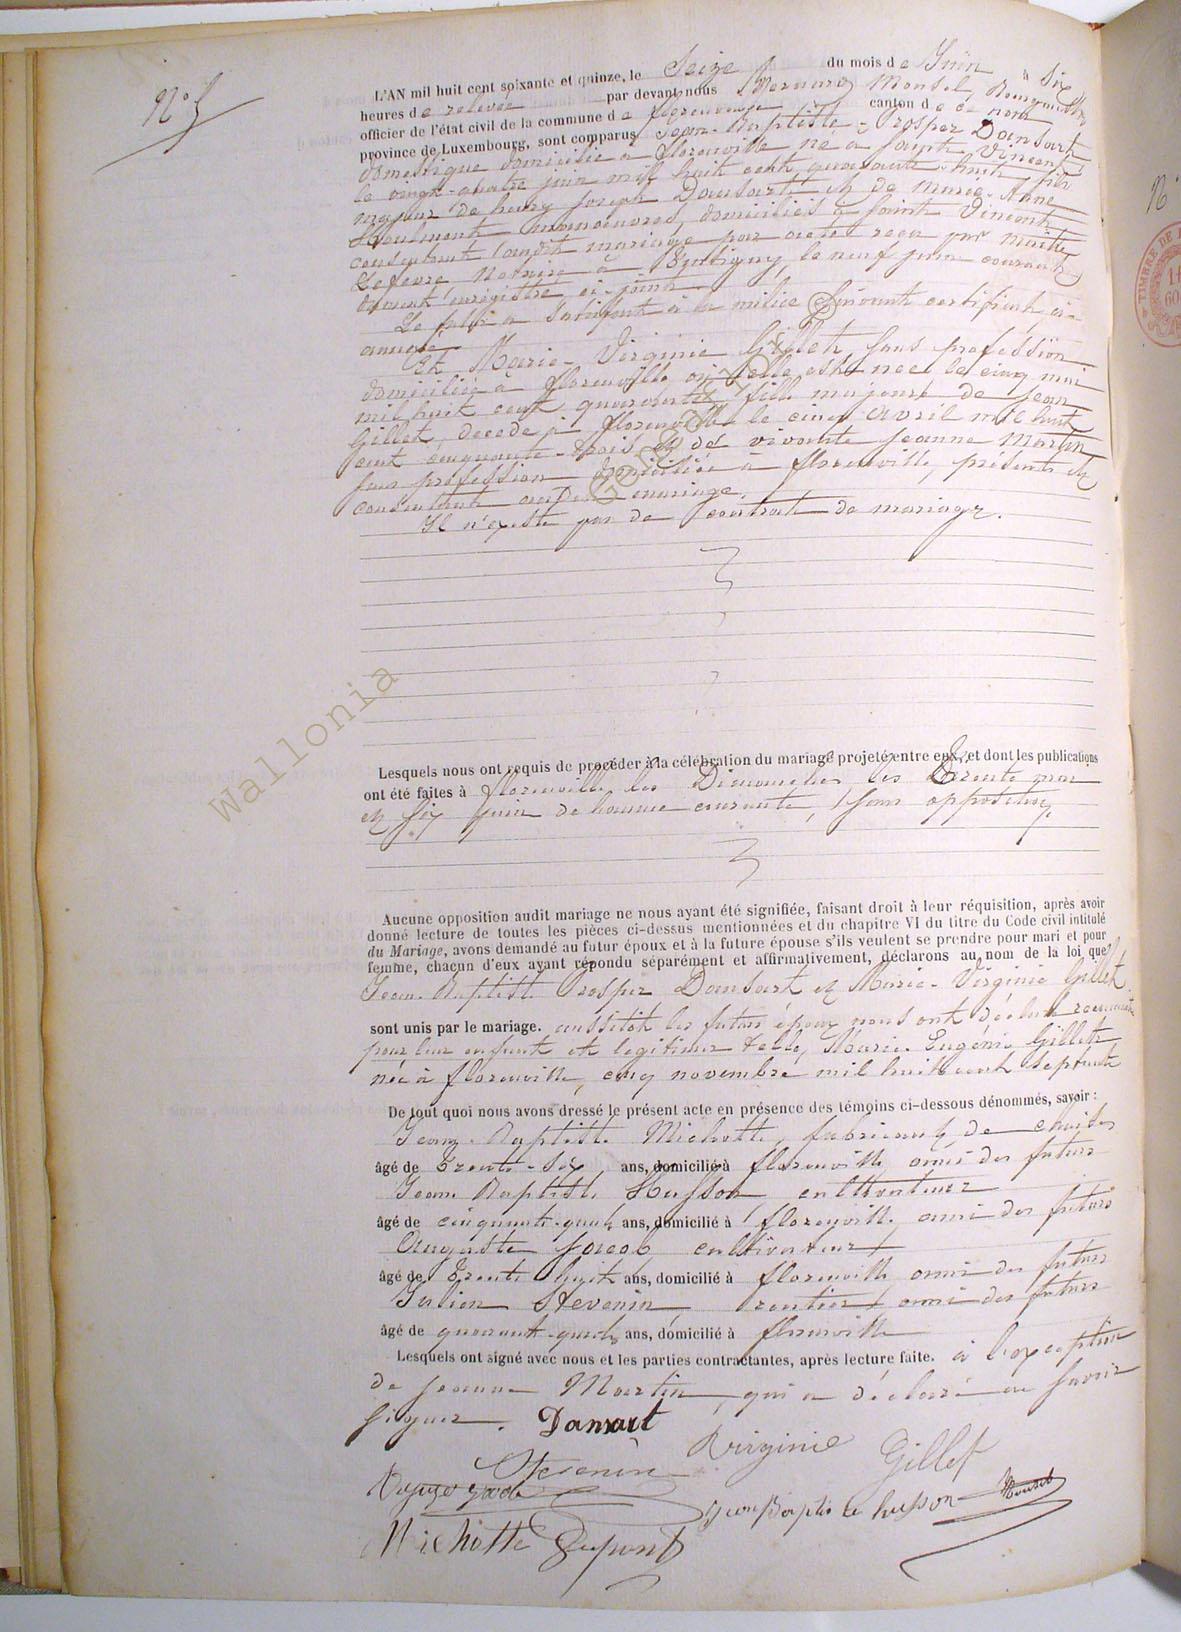 N° 5
L'AN mil huit cent soixante et quinze, le Seize du mois de Juin à Six
heures de relevée par devant nous Bourgmestre
officier de l'état civil de la commune de florenville canton de ce nom
province de Luxembourg, sont comparus Jean-Baptiste-Prosper Dansart
domestique domicilié à florenville né à Saint Vincent
le vingt-quatre juin mil huit cent quarante-huit, fils
majeur de henry Joseph Dansart et de Marie-Anne
manoeuvres, domiciliés à Saint Vincent
consentant audit mariage par acte recu par Maitre
Lefevre Notaire à le neuf juin courant
enregistré ci-joint
Le futur a satisfait à la milice suivant certificat ci-
annexé.
Et Marie-Virginie Gillet sans profession
domiciliée à florenville où elle est née le cinq mai
mil huit cent quarante, fille majeure de Jean
Gillet, décédé à florenville le cinq avril mil huit
cent cinquante-trois et de vivante Jeanne Martin
sans profession domiciliée à florenville, présente et
consentante mariage.
Il n'existe pas de contrat de mariage.
Lesquels nous ont requis de procéder à la célébration du mariage projeté entre eux, et dont les publications
ont été faites à florenville les Dimanches les Trente mai
et six juin de l'année courante, sans opposition,
Aucune opposition audit mariage ne nous ayant été signifiée, faisant droit à leur réquisition, après avoir
donné lecture de toutes les pièces ci-dessus mentionnées et du chapitre VI du titre du Code civil intitulé
du Mariage, avons demandé au futur époux et à la future épouse s'ils veulent se prendre pour mari et pour
femme, chacun d'eux ayant répondu séparément et affirmativement, déclarons au nom de la loi que
Jean-Baptiste Prosper Dansart et Marie-Virginie Gillet
sont unis par le mariage. aussitôt les futurs époux nous ont déclaré reconnaitre
pour leur enfant et légitimer celle, Marie-Eugénie Gillet
née à florenville, cinq novembre mil huit cent septante
De tout quoi nous avons dressé le présent acte en présence des témoins ci-dessous dénommés, savoir :
Jean-Baptiste Michotte, fabricant de chaises
âgé de Trente-six ans, domicilié à florenville, ami des futurs
Jean Baptiste Husson cultivateur
âgé de cinquante-quatre ans, domicilié à florenville, ami des futurs
Auguste Jacob cultivateur
âgé de Trente huit ans, domicilié à florenville ami des futurs
Julien Stevenin rentier ami des futurs
âgé de quarante-quatre ans, domicilié à florenville
Lesquels ont signé avec nous et les parties contractantes, après lecture faite. à l'exception
de Jeanne Martin, qui a déclaré ne savoir
signer. Dansart
Virginie Gillet
Stevenin
Jean Baptiste husson
Michotte Dupont
Wallonia
TIMBRE DE